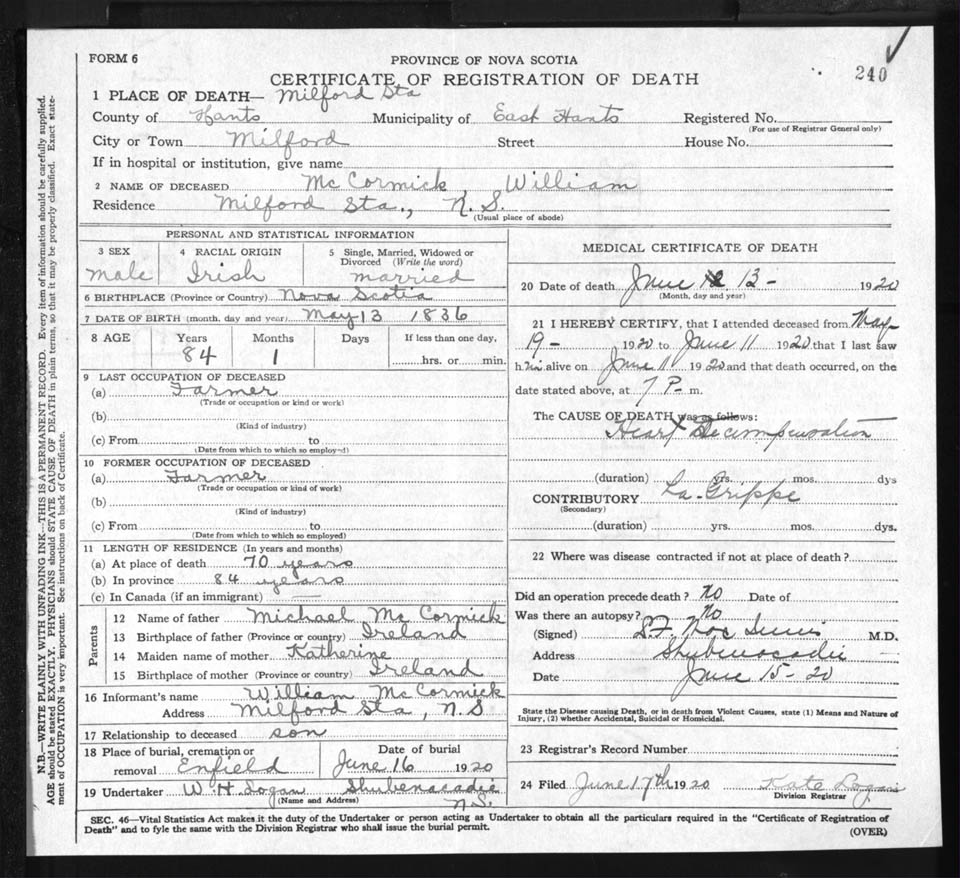 FORM 6
PROVINCE OF NOVA SCOTIA
240
CERTIFICATE OF REGISTRATION OF DEATH
1 PLACE OF DEATH— Milford Sta
County of Hants Municipality of East Hants Registered No.
(For use of Registrar General only)
City or Town Milford Street House No.
If in hospital or institution, give name
2 NAME OF DECEASED McCormick, William
Residence Milford Sta., N.S.
(Usual place of abode)
PERSONAL AND STATISTICAL INFORMATION
3 SEX 4 RACIAL ORIGIN 5 Single, Married, Widowed or
Divorced (Write the word)
male Irish married
6 BIRTHPLACE (Province or Country) Nova Scotia
7 DATE OF BIRTH (month, day and year) May 13 1836
8 AGE Years Months Days If less than one day,
84 1 hrs. or min.
9 LAST OCCUPATION OF DECEASED
(a) Farmer
(Trade or occupation or kind or work)
(b)
(Kind of industry)
(c) From to
(Date from which to which so employed)
10 FORMER OCCUPATION OF DECEASED
(a) Farmer
(Trade or occupation or kind of work)
(b)
(Kind of industry)
(c) From to
(Date from which to which so employed)
11 LENGTH OF RESIDENCE (In years and months)
(a) At place of death 70 years
(b) In province 84 years
(c) In Canada (if an immigrant) —
Parents
12 Name of father Michael McCormick
13 Birthplace of father (Province or country) Ireland
14 Maiden name of mother Katherine
15 Birthplace of mother (Province or country) Ireland
16 Informant's name William McCormick
Address Milford Sta, N.S
17 Relationship to deceased son
18 Place of burial, cremation or
removal Enfield
Date of burial
June 16 1920
19 Undertaker W.H. Logan Shubenacadie
(Name and Address) N.S.
MEDICAL CERTIFICATE OF DEATH
20 Date of death June 13 - 1920
(Month, day and year)
21 I HEREBY CERTIFY, that I attended deceased from May
19 - 1920 to June 11 1920 that I last saw
him alive on June 11 1920 and that death occurred, on the
date stated above, at 7 P- m.
The CAUSE OF DEATH was as follows:
Heart Decompensation
(duration) yrs. mos. dys
CONTRIBUTORY La Grippe
(Secondary)
(duration) yrs. mos. dys.
22 Where was disease contracted if not at place of death?
Did an operation precede death? No Date of
Was there an autopsy? No
(Signed) M.D.
Address Shubenacadie
Date June 15-20
State the Disease causing Death, or in death from Violent Causes, state (1) Means and Nature of
Injury, (2) whether Accidental, Suicidal or Homicidal.
23 Registrar's Record Number
24 Filed June 17th 1920 Kate Logan
Division Registrar
SEC. 46—Vital Statistics Act makes it the duty of the Undertaker or person acting as Undertaker to obtain all the particulars required in the "Certificate of Registration of
Death" and to fyle the same with the Division Registrar who shall issue the burial permit.
(OVER)
N.B.—WRITE PLAINLY WITH UNFADING INK—THIS IS A PERMANENT RECORD. Every item of information should be carefully supplied.
AGE should be stated EXACTLY. PHYSICIANS should STATE CAUSE OF DEATH in plain terms, so that it may be properly classified. Exact state-
ment of OCCUPATION is very important. See instructions on back of Certificate.